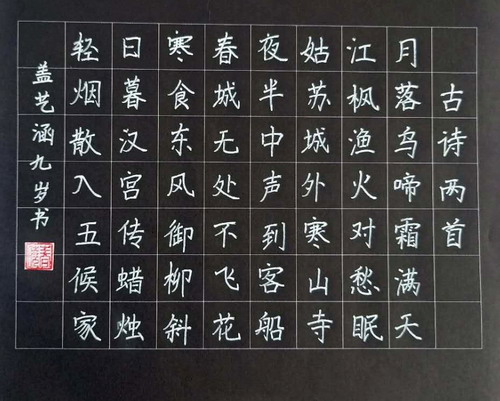 古诗两首
月落乌啼霜满天
江枫渔火对愁眠
姑苏城外寒山寺
夜半中声到客船
春城无处不飞花
寒食东风御柳斜
日暮汉宫传蜡烛
轻烟散入五候家
盖艺涵九岁书